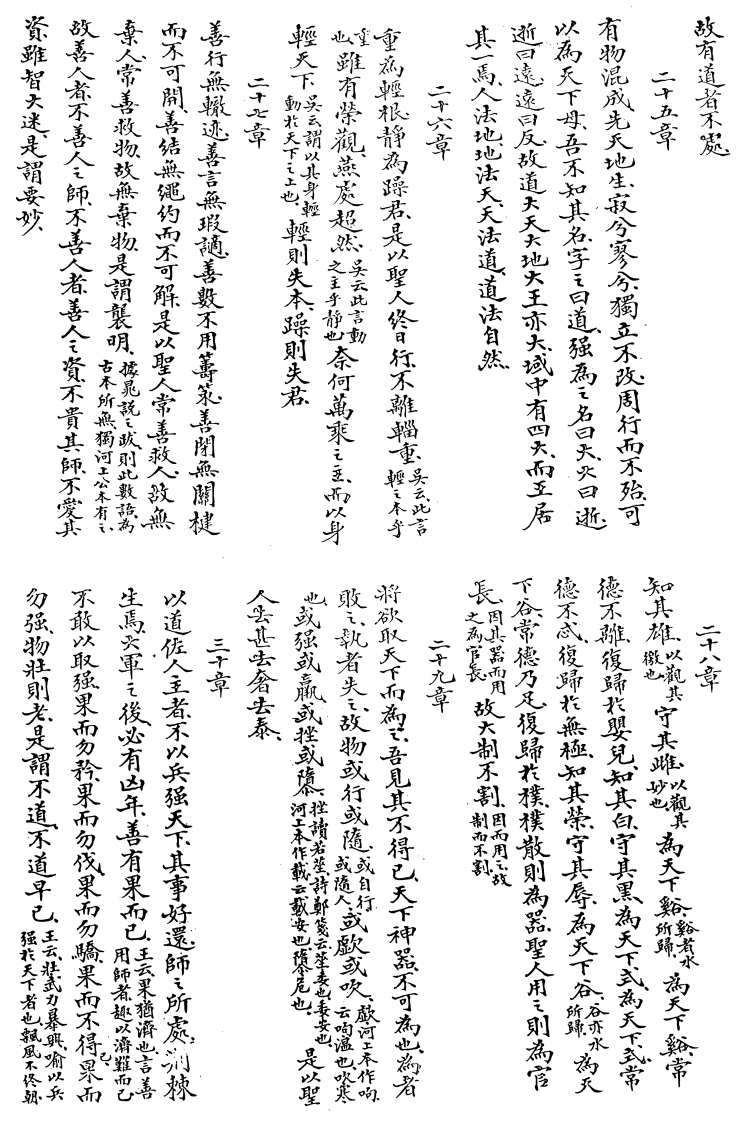 故有道者不處
二十五章
有物混成先天地生、寂兮寥兮、獨立不改、周行而不殆、可
以為天下母、吾不知其名、字之曰道、强為之名曰大、大曰逝、
逝曰遠、遠曰反、故道大天大地大王亦大、域中有四大、而王居
其一焉、人法地、地法天、天法道、道法自然、
二十六章
重為輕根、靜為躁君、是以聖人終日行、不離輜重、吳云此言輕之本乎
重也、雖有榮觀、燕處超然、吳云此言動之主乎靜也 奈何萬乘之主、而以身
輕天下、吳云謂以其身輕動於天下之上也、 輕則失本、躁則失君、
二十七章
善行無轍迹、善言無瑕讁、善數不用籌策、善閉無關楗
而不可開、善結無繩約而不可解、是以聖人常善救人、故無
棄人、常善救物、故無棄物、是謂襲明、據晁說之跋則此數語、為古本所無、獨河上公本有之、
故善人者、不善人之師、不善人者、善人之資、不貴其師、不愛其
資、雖智大迷、是謂要妙、
二十八章
知其雄、以觀其徼也、 守其雌、以觀其妙也 為天下谿、谿者水所歸、 為天下谿、常
德不離、復歸於嬰兒、知其白、守其黑、為天下式、為天下式、常
德不忒、復歸於無極、知其榮、守其辱、為天下谷、谷亦水所歸、 為天
下谷、常德乃足、復歸於樸、樸散則為器、聖人用之則為官
長、因其器而用之為官長、 故大制不割、因而用之故制而不割、
二十九章
將欲取天下而為之、吾見其不得已、天下神器、不可為也、為者
敗之、執者失之、故物或行或隨、或自行或隨人、或歔或吹、歔河上本作呴、云呴溫也、吹寒
也、或强或羸、或挫或隳、挫讀若莝、詩鄭箋云莝委也、委安也河上本作載云載安也隳危也、 是以聖
人去甚去奢去泰、
三十章
以道佐人主者、不以兵强天下、其事好還、師之所處、荆棘
生焉、大軍之後、必有凶年、善有果而已、王云果猶濟也言善用師者、趣以濟難而已
不敢以取强、果而勿矜、果而勿伐、果而勿驕、果而不得已、果而
勿强、物壯則老、是謂不道、不道早已、王云、壯、武力暴興、喻以兵强於天下者也、飄風不終朝、